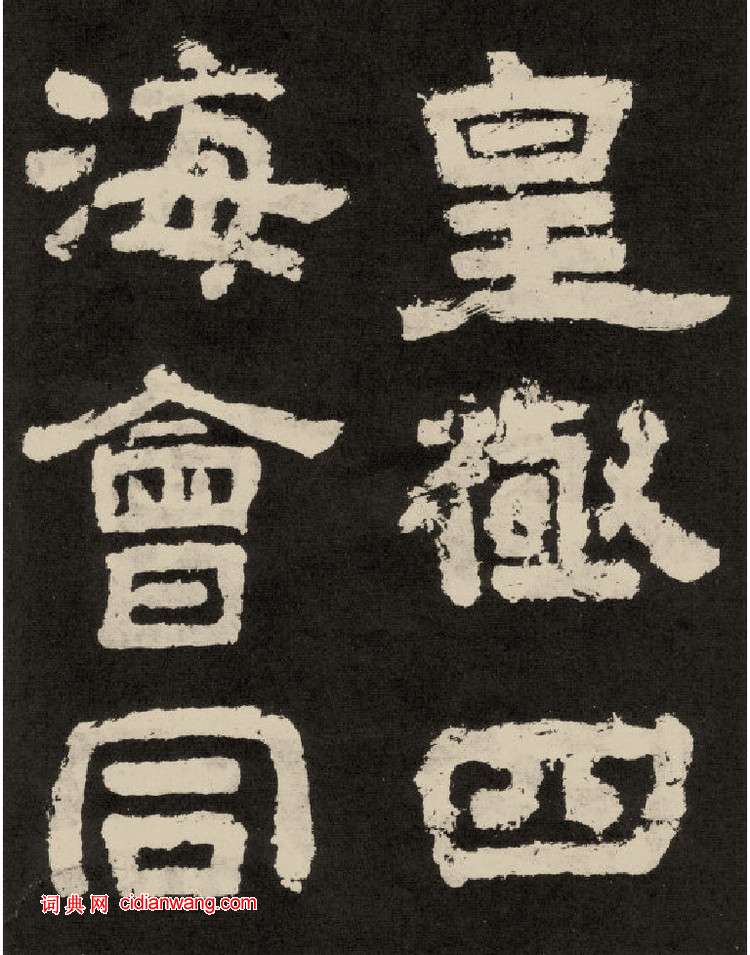 皇極四
海會同
词典网 cidianwang.com